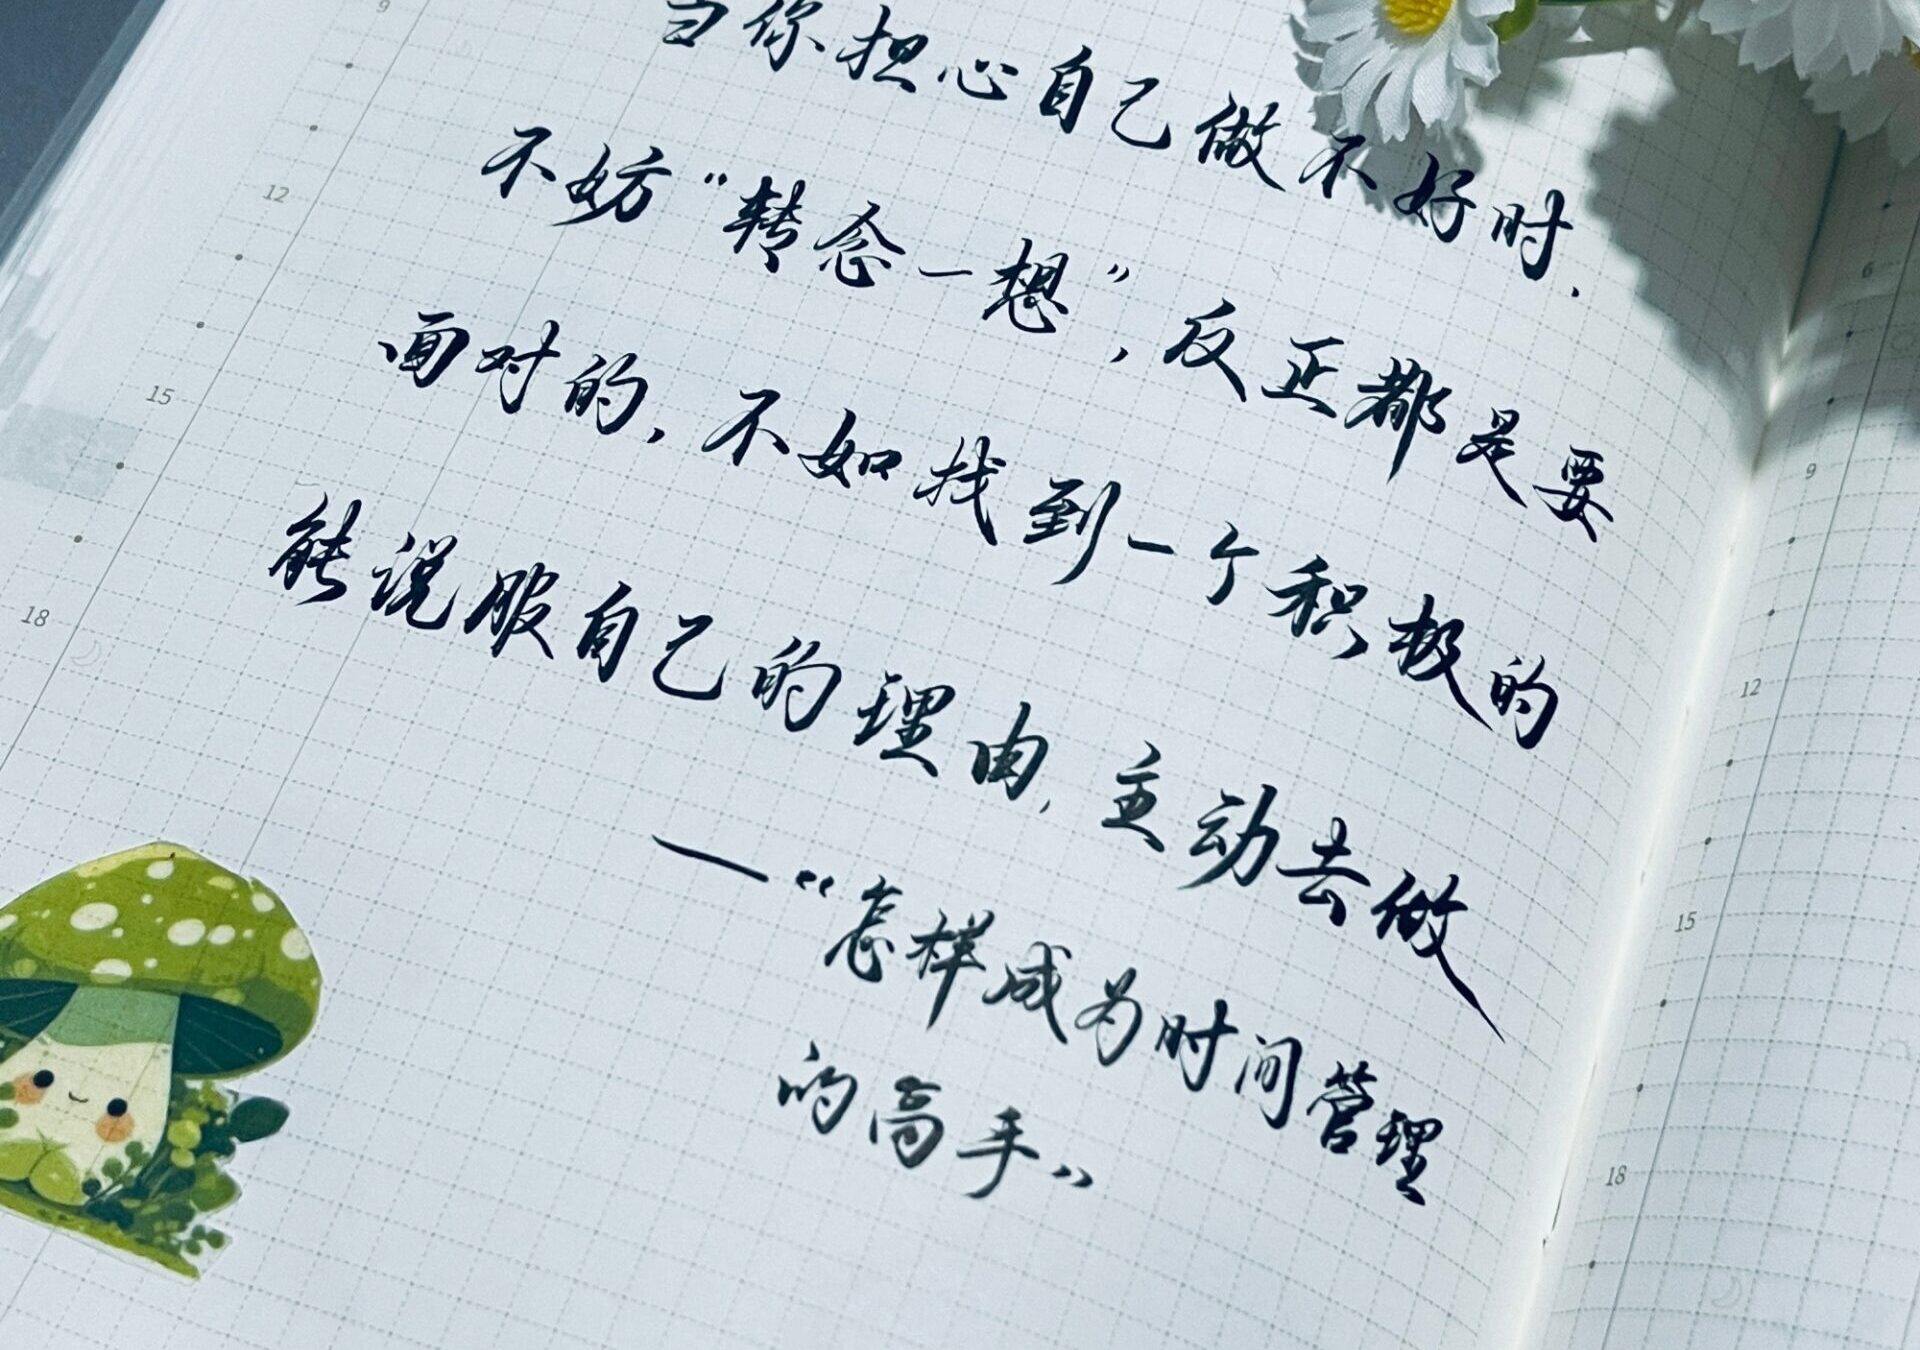 当你担心自己做不好时，
不妨“转念一想”，反正都是要
面对的，不如找到一个积极的
能说服自己的理由，主动去做
—“怎样成为时间管理
的高手”
9
12
15
18
6
9
12
15
18